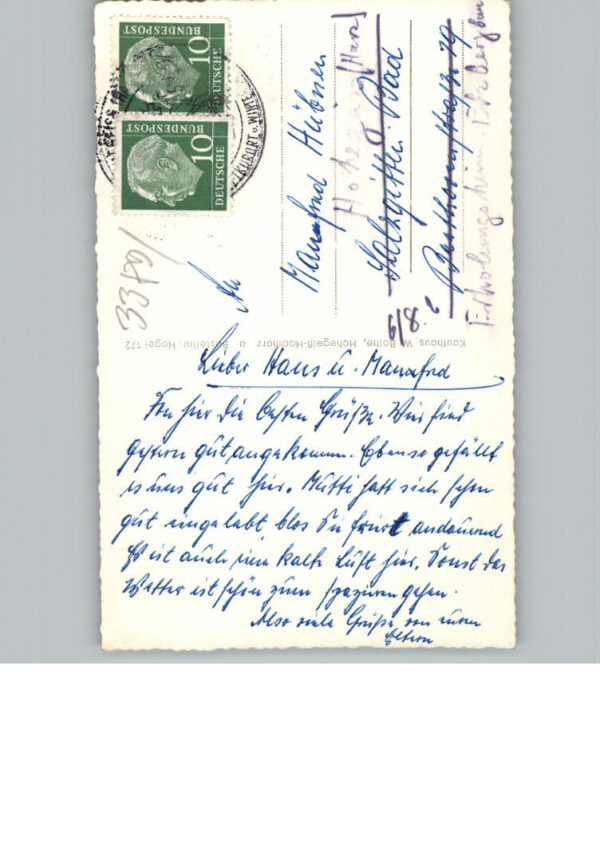 DEUTSCHE
BUNDESPOST
10
DEUTSCHE
BUNDESPOST
10
KURORT u. WINTE
3379/
An
Manfred Hübner
Hohegeiß/Harz
Salzgitter-Bad
29
Erholungsheim
6/8
Kaufhaus W. Bothe, Hohegeiß-Hochharz
Lieber Hans u. Manfred
Von hier die besten Grüße. Wir sind
gestern gut angekomm. Ebenso gefällt
es uns gut hier. Mutti hatt sich schon
gut eingelebt, blos Sie friert andauernd
Es ist auch eine kalte Luft hier. Sonst das
Wetter ist schön zum spazieren gehen.
Also viele Grüße von euren
Eltern